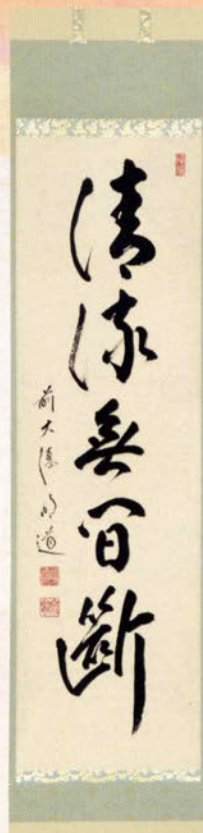 清流無間斷
前大徳明道